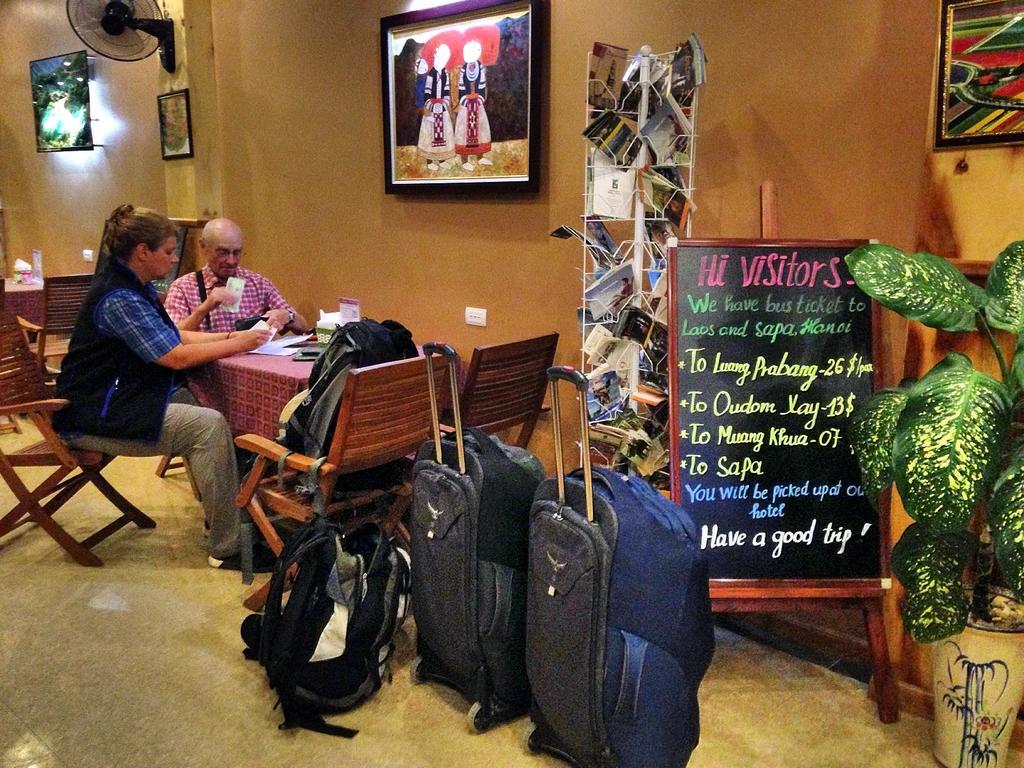 Hi Visitors
We have bus ticket to
Laos and Sapa, Hanoi
*To Luang Prabang-26 $/
*To Oudom Xay-13$
*To Muang Khua-07
*To Sapa
You will be picked up at ou
hotel
Have a good trip!